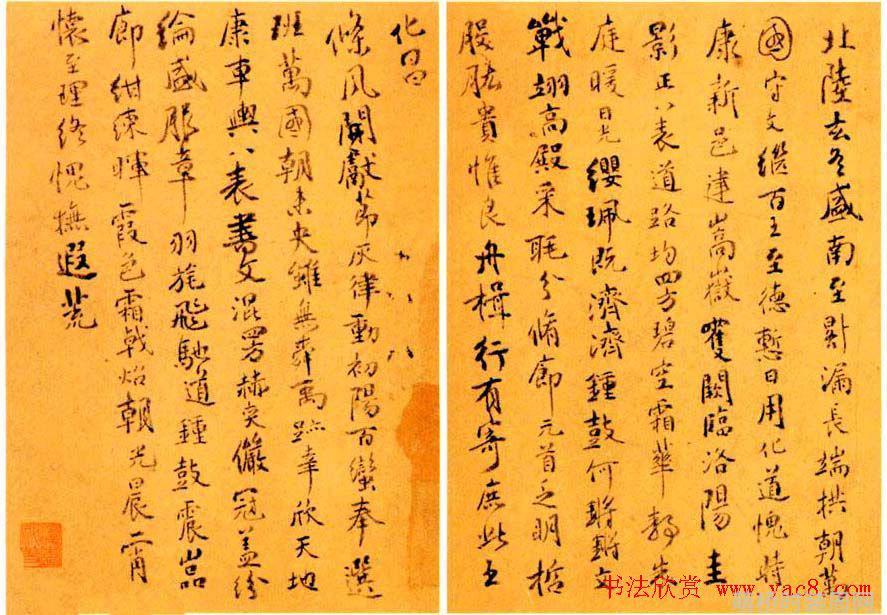 北陸玄冬盛南至漏長端拱朝萬
國守文繼百王至德慙日用化道愧時
康新邑建嵩嶽雙闕臨洛陽圭
影正八表道路均四方碧空霜華静朱
庭暖日光纓珮既濟濟鍾鼓何鏘鏘文
戟翊高殿采眊分脩廊元首乏明哲
股肱貴惟良舟楫行有寄庶此王
化昌
條風開獻節灰律動初陽百蠻奉
萬國朝未央雖無舜禹跡幸欣天地
康車輿八表書文混四方赫奕儼冠盖紛
綸盛服章羽旄飛馳道鍾鼓震巖
廊紺練暉霞色霜戟炤朝光晨宵
懷至理終愧撫遐荒
书法欣赏 www.yac8.com